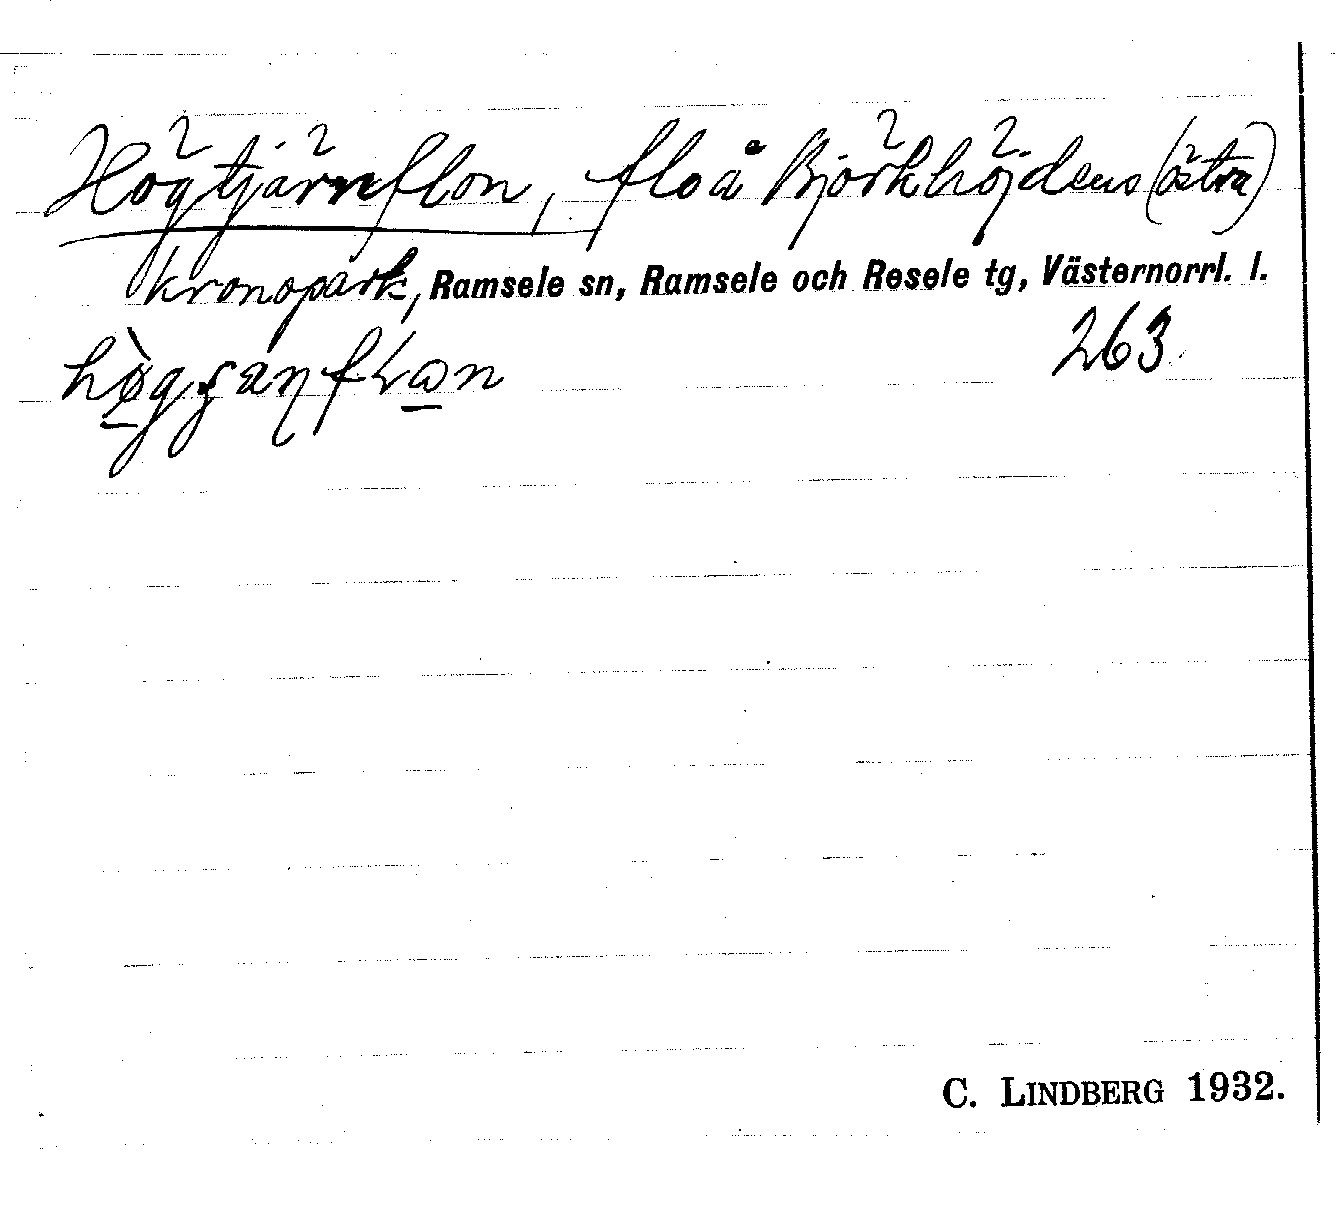 Högtjärnflon, flo å Björkhöjdens (östra)
kronopark, Ramsele sn, Ramsele och Resele tg, Västernorrl. l.
263
C. LINDBERG 1932.